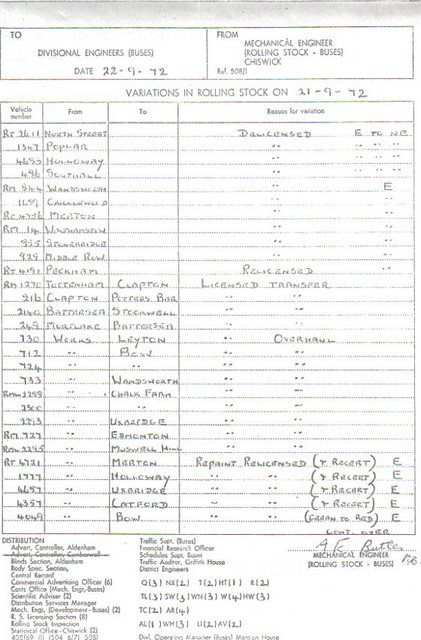 TO
DIVISIONAL ENGINEERS (BUSES)
DATE 22-9-72
FROM
MECHANICAL ENGINEER
(ROLLING STOCK - BUSES)
CHISWICK
Ref. 508/1
VARIATIONS IN ROLLING STOCK ON 21-9-72
Vehicle number From To Reason for variation
RT 2611 NORTH STREET DELICENSED E TO NE
1347 POPLAR " " " "
4655 HOLLOWAY " " " "
486 SOUTHALL " " " "
RM 844 WANDSWORTH " E
1659 CRICKLEWOOD " "
RT 4356 MERTON " "
RM 14 WALTHAMSTOW " "
955 STONEBRIDGE " "
929 MIDDLE ROW " "
RT 4191 PECKHAM RELICENSED "
RM 1270 TOTTENHAM CLAPTON LICENSED TRANSFER
216 CLAPTON POTTERS BAR " "
2140 BATTERSEA STOCKWELL " "
249 MORTLAKE BATTERSEA " "
730 WORKS LEYTON " OVERHAUL
712 " BOW " "
724 " " " "
733 " WANDSWORTH " "
2258 " CHALK FARM " "
2500 " " " "
2213 " UXBRIDGE " "
RM 727 " EDMONTON " "
2245 " MUSWELL HILL " "
RT 4721 " MERTON REPAINT RELICENSED (& RECERT) E
1777 " HOLLOWAY " " (& RECERT) E
4687 " UXBRIDGE " " (& RECERT) E
4357 " CATFORD " " (& RECERT) E
4049 " BOW " " (GREEN TO RED) E
CONT. OVER
DISTRIBUTION
Advert. Controller, Aldenham
Advert. Controller, Camberwell
Blinds Section, Aldenham
Body Spec. Section,
Central Record
Commercial Advertising Officer (6)
Costs Office (Mech. Engr-Buses)
Scientific Adviser (2)
Distribution Services Manager
Mech. Engr. (Development - Buses) (2)
R. S. Licensing Section (8)
Rolling Stock Inspection
Statistical Office - Chiswick (2)
Traffic Supt. (Buses)
Financial Research Officer
Schedules Supt. Buses
Traffic Auditor, Griffith House
District Engineers
Q(3) NX(2) T(2) HT(1) R(2)
TL(3) SW(3) WN(3) W(4) HW(3)
TC(2) AR(4)
AL(1) WH(3) U(2) AV(2)
Divl. Operating Manager (Buses) Mansion House
MECHANICAL ENGINEER
(ROLLING STOCK - BUSES)